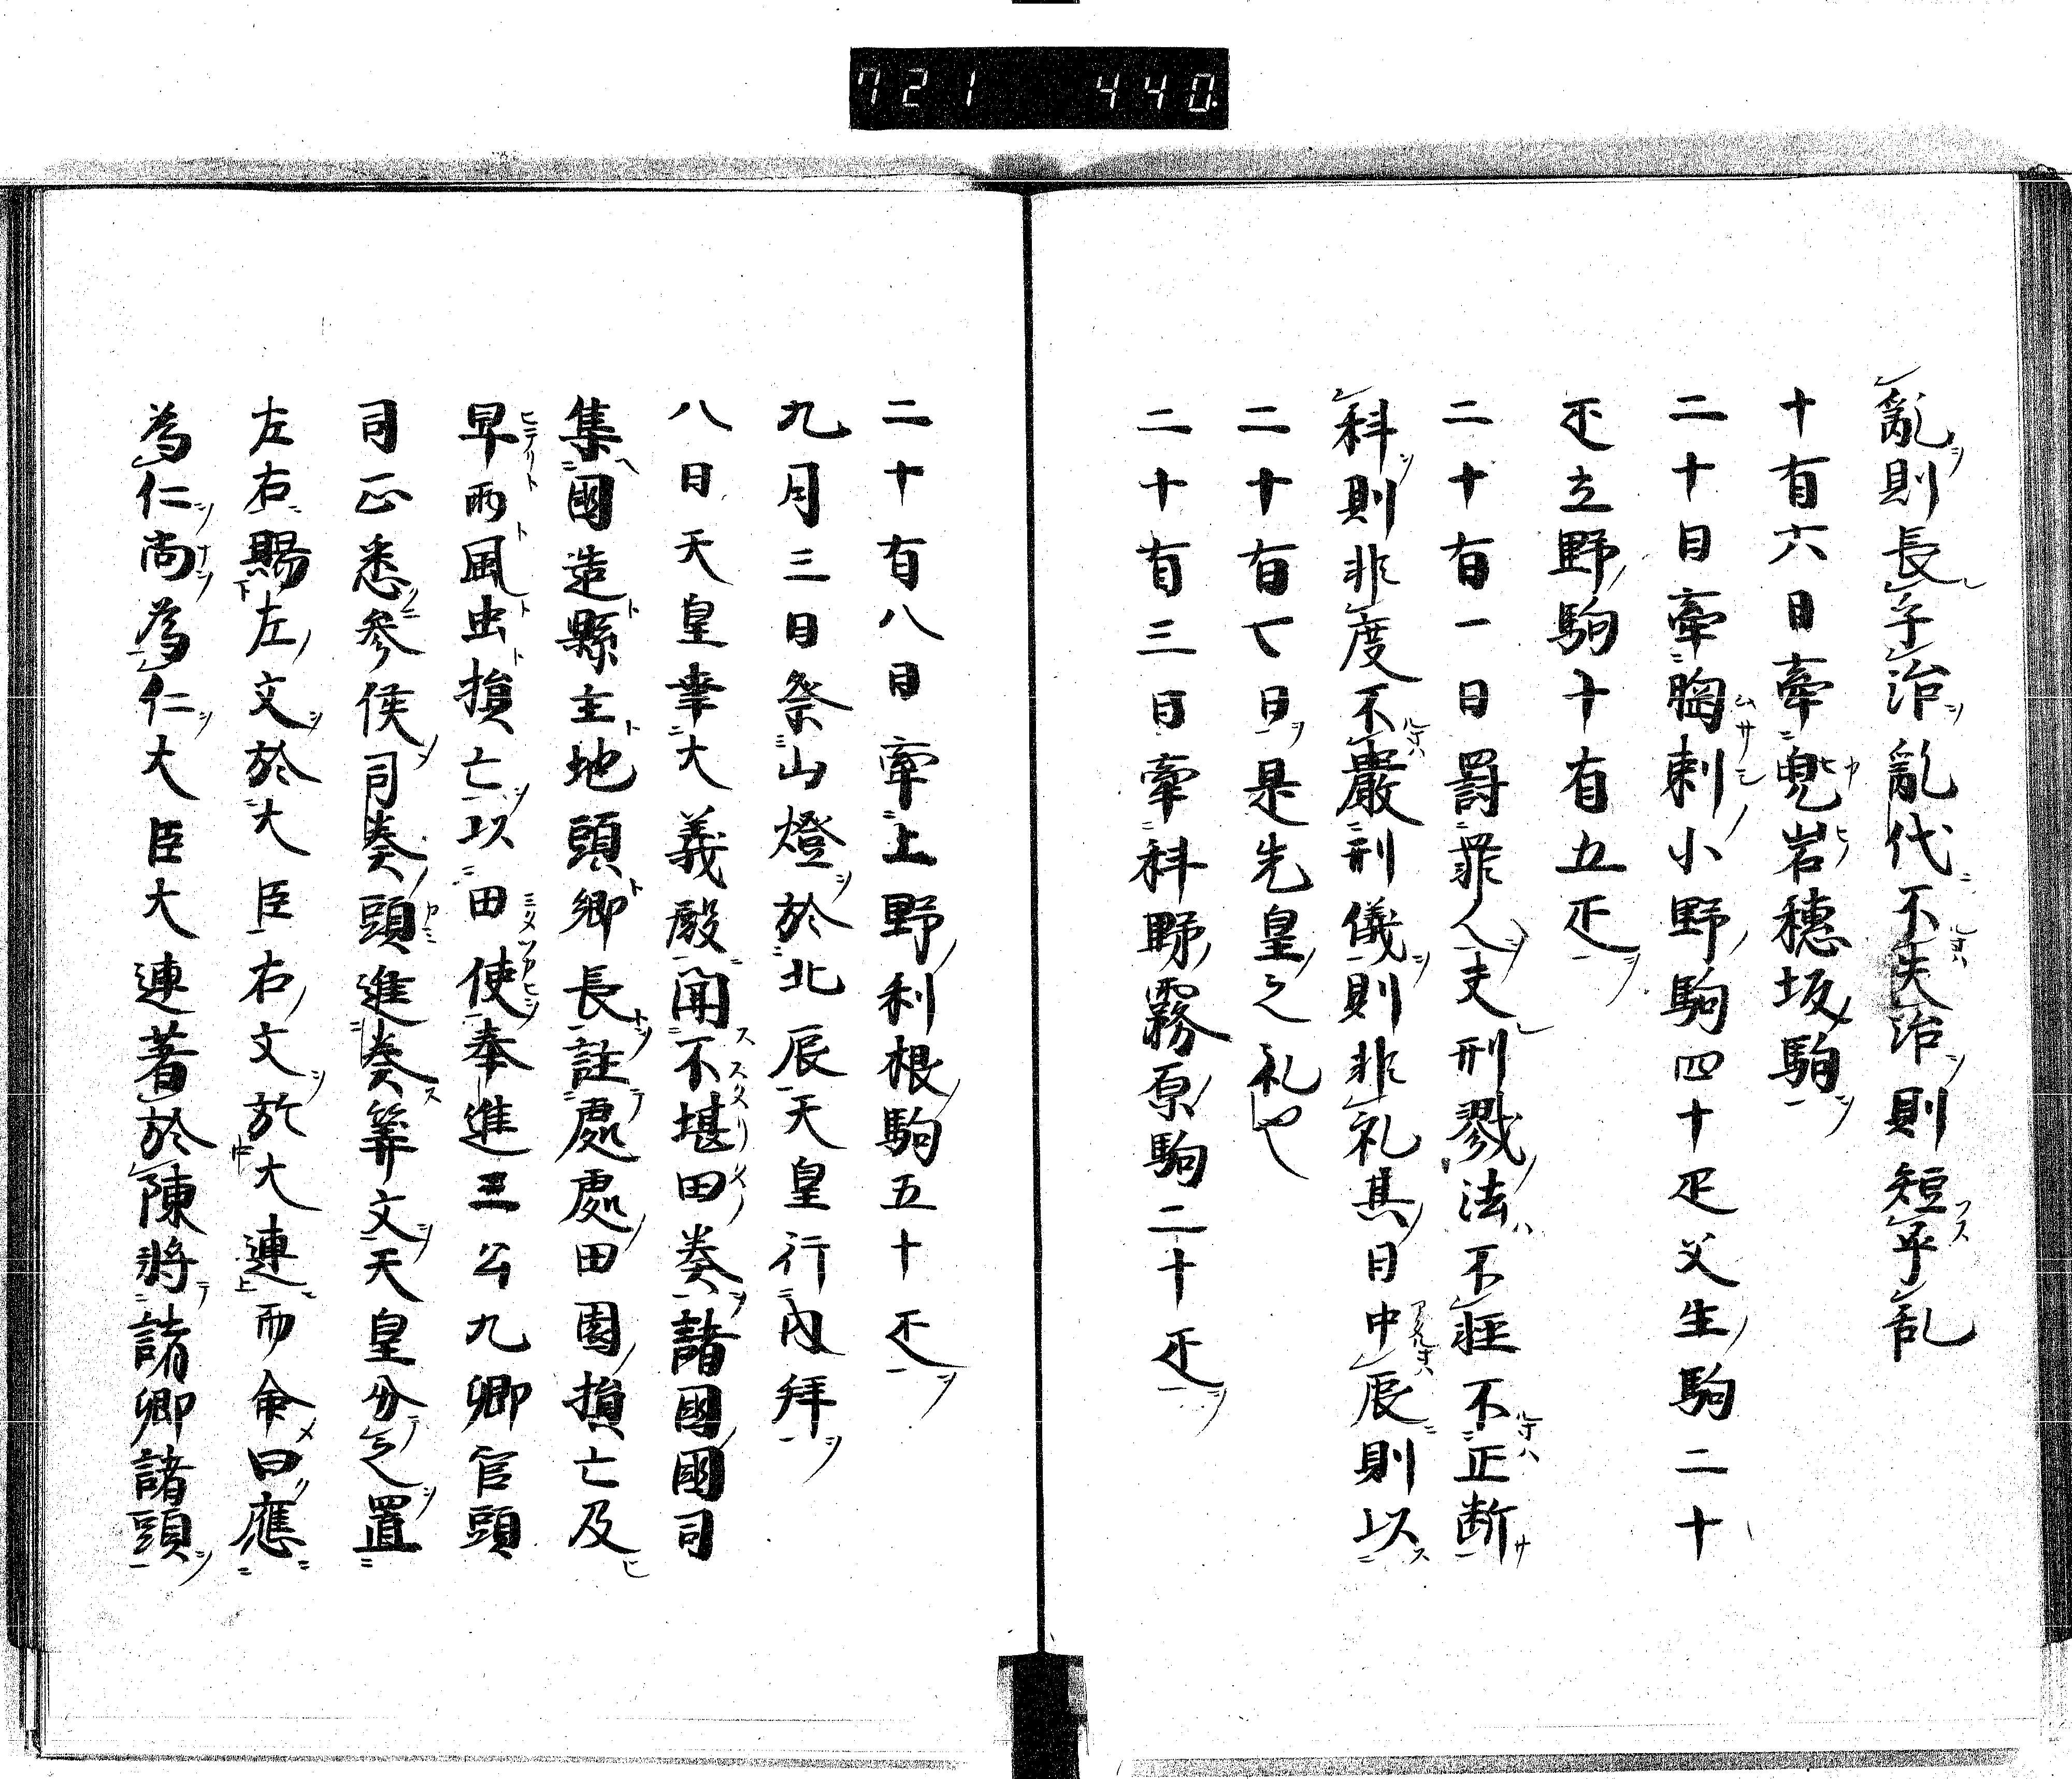 721 440
亂則長乎治亂代不失治則短乎乱
十有六日牽兜岩穗坂駒
二十日牽胸刺小野駒四十疋父生駒二十
疋立野駒十有五疋
二十有一日罰罪人夫刑戮法不莊不正断
科則非度不嚴刑儀則非礼其日中辰則以
二十有七日是先皇之礼也
二十有三日牽科野霧原駒二十疋
二十有八日牽上野利根駒五十疋
九月三日祭山燈於北辰天皇行内拜
八日天皇幸大義殿聞不堪田奏諸國國司
集國造縣主地頭郷長註處處田園損亡及
旱雨風虫損亡以田使奉進三公九卿官頭
司正悉參候司奏頭進奏筭文天皇分之置
左右賜左文於大臣右文於大連而命曰應
為仁尚為仁大臣大連著於陳將諸卿諸頭